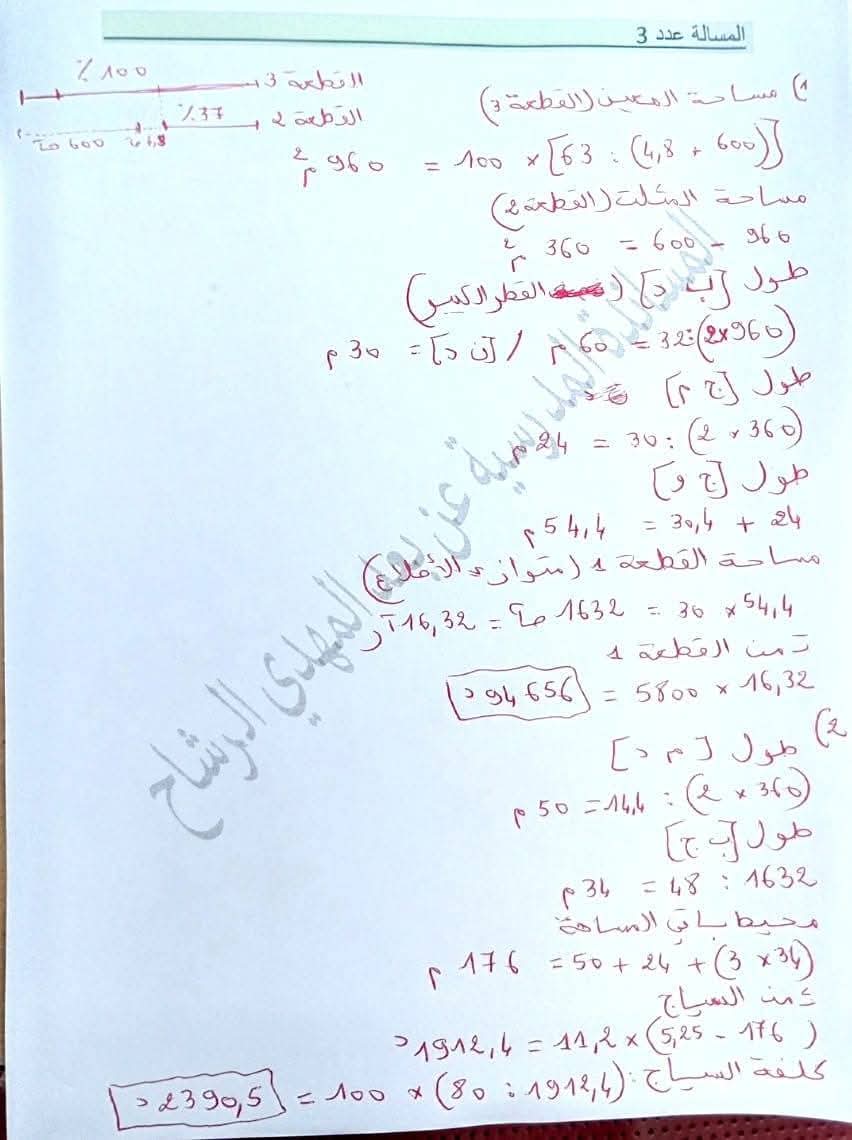 المسالة عدد 3
% 100
القطعة 3
% 37
القطعة 2
600 صآ 4,8
1) مساحة المعين (القطعة 3)
[(600 + 4,8) : 63] × 100 = 960 م2
مساحة المثلث (القطعة 2)
960 - 600 = 360 م2
طول [ب د] (القطر الكبير)
(960×2):32 = 60 م / [ن د] = 30 م
طول [ج م]
(360 × 2) : 30 = 24 م
طول [ج و]
24 + 30,4 = 54,4 م
مساحة القطعة 1 (متوازي الأضلاع)
54,4 × 30 = 1632 صآ = 16,32 آر
ثمن القطعة 1
16,32 × 5800 = 94656 د
2) طول [م د]
(360 × 2) : 14,4 = 50 م
طول [ب ج]
1632 : 48 = 34 م
محيط باقي المساحة
(34 × 3) + 24 + 50 = 176 م
ثمن السياج
(176 - 5,25) × 11,2 = 1912,4 د
كلفة السياج: (1912,4 : 80) × 100 = 2390,5 د
المساندة المدرسية عن بعد المهدي الرشاح